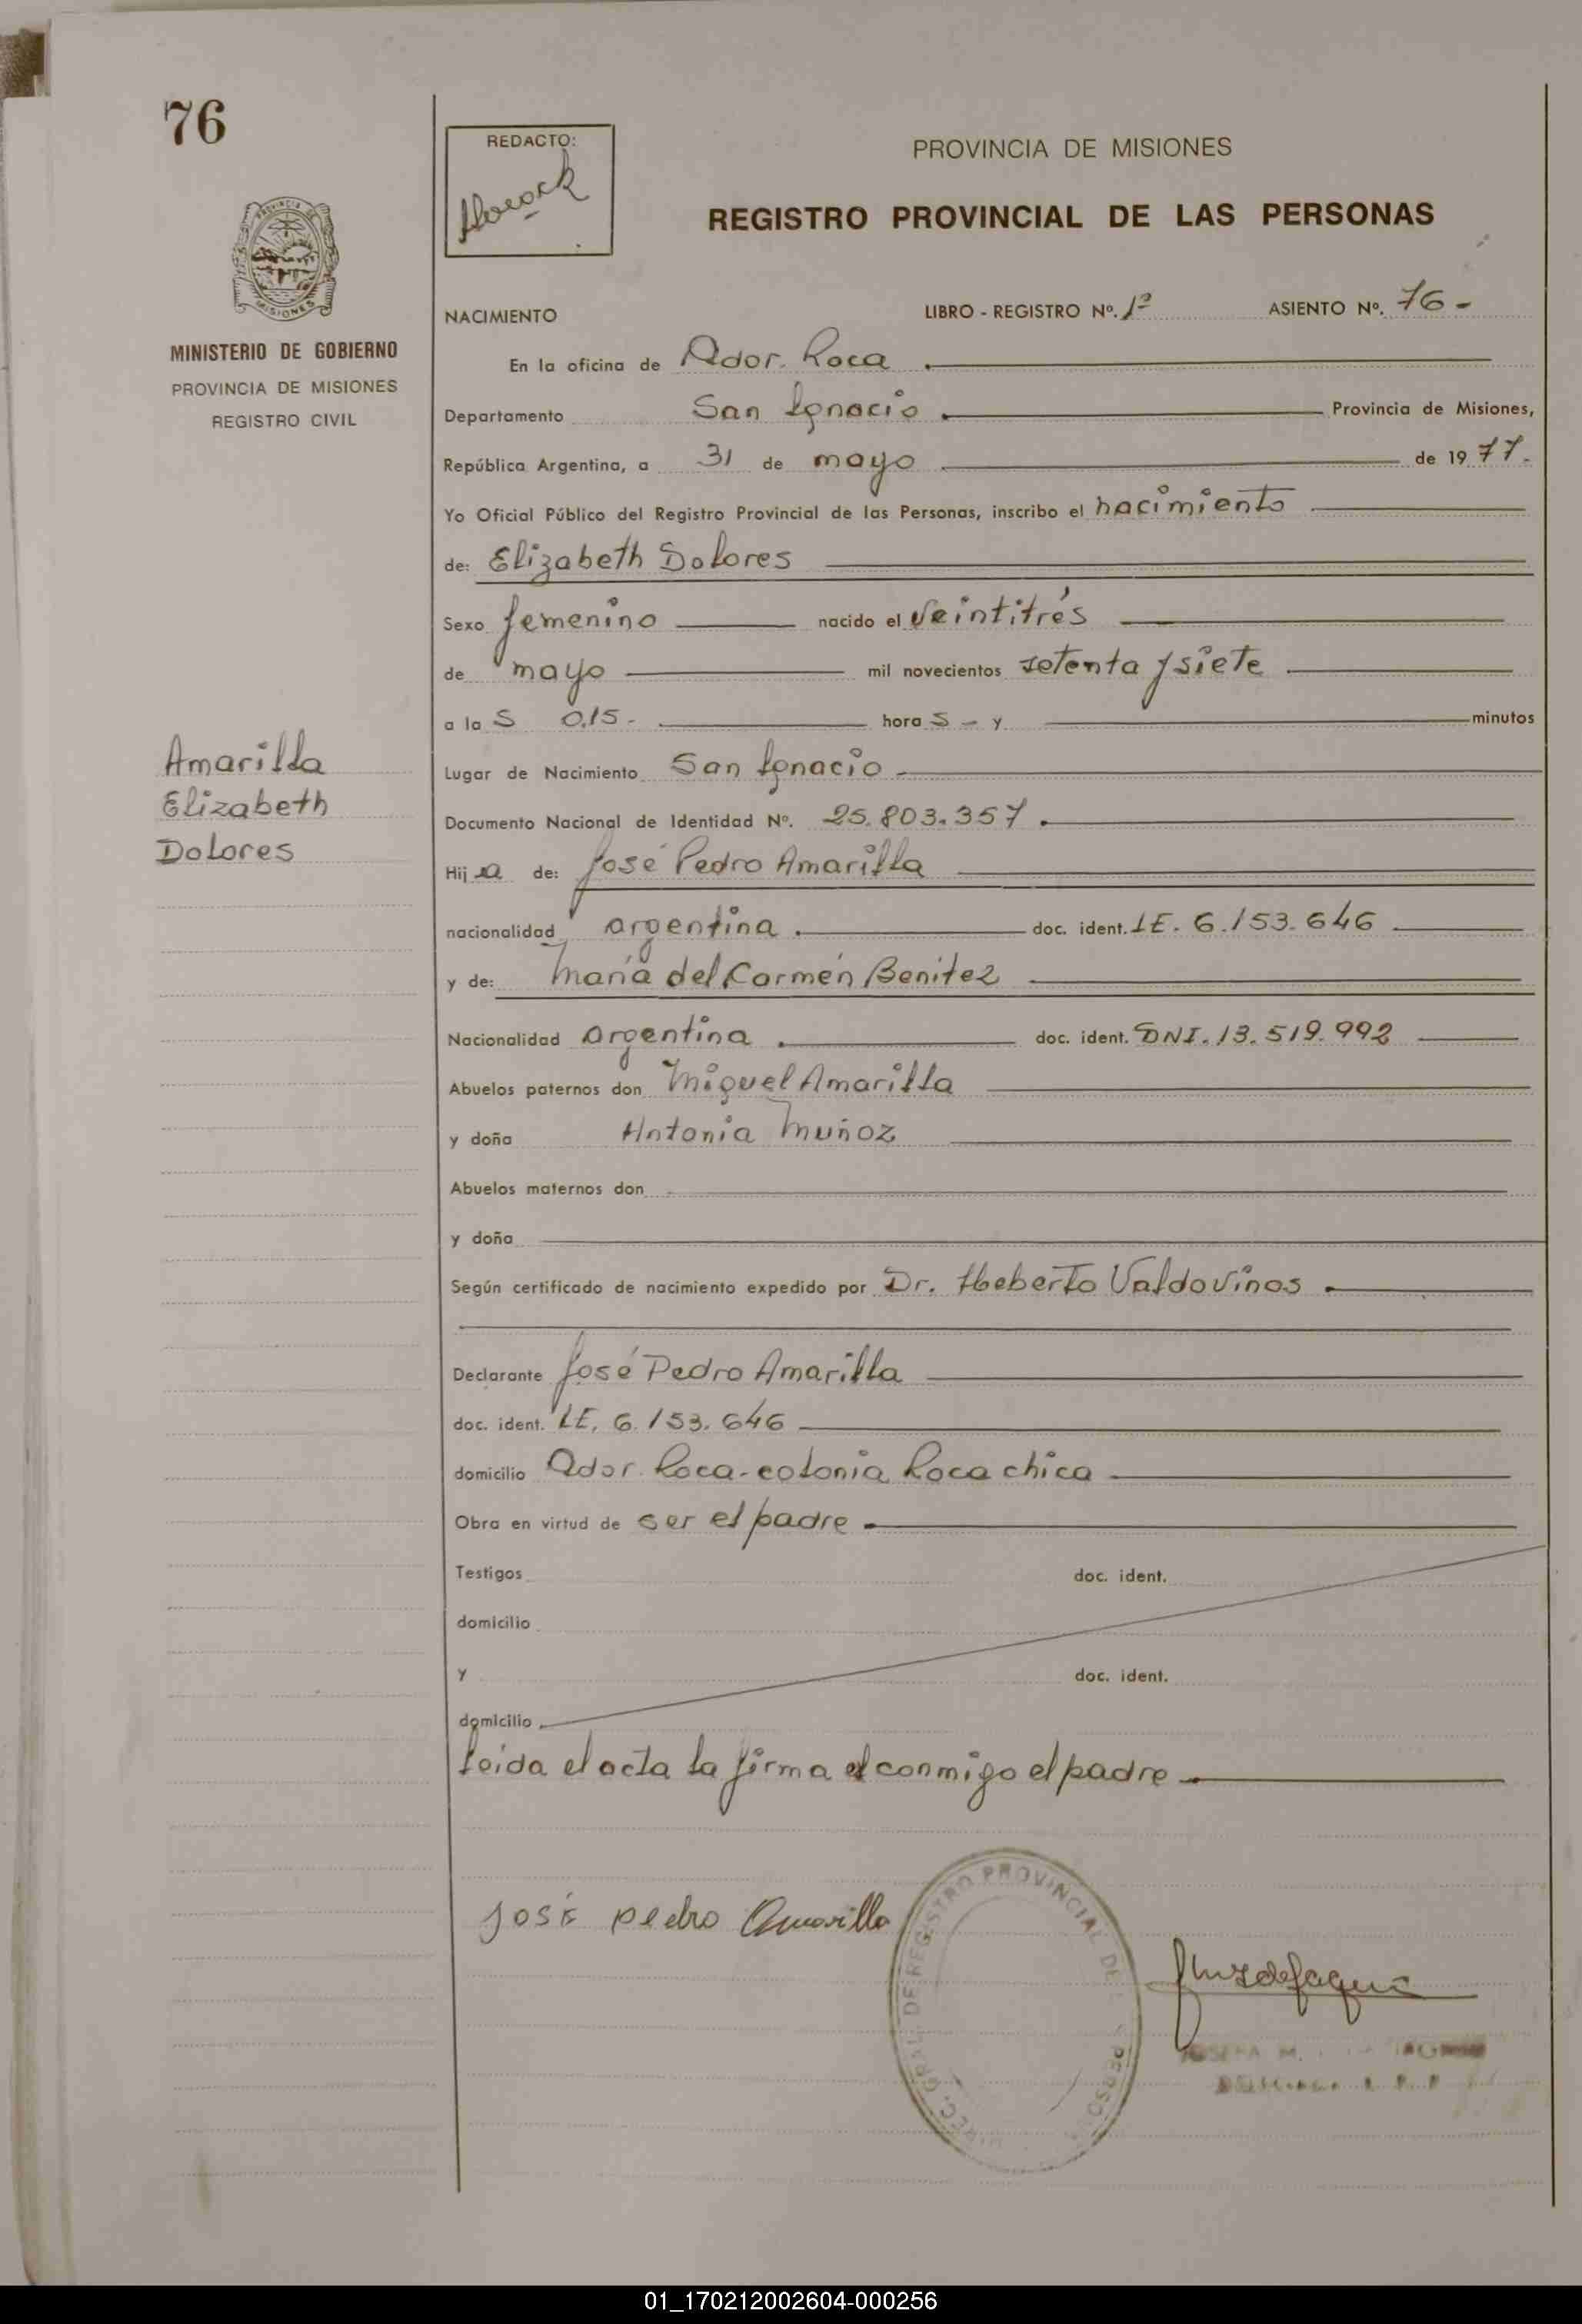 76
MINISTERIO DE GOBIERNO
PROVINCIA DE MISIONES
REGISTRO CIVIL
Amarilla
Elizabeth
Dolores
REDACTO:
PROVINCIA DE MISIONES
REGISTRO PROVINCIAL DE LAS PERSONAS
NACIMIENTO LIBRO - REGISTRO Nº. 1º ASIENTO Nº. 76 -
En la oficina de Ador. Roca .
Departamento San Ignacio . Provincia de Misiones,
República Argentina, a 31 de mayo de 19 77.
Yo Oficial Público del Registro Provincial de las Personas, inscribo el nacimiento
de: Elizabeth Dolores
Sexo femenino nacido el veintitrés
de mayo mil novecientos setenta y siete
a la s 0,15 - hora s - y minutos
Lugar de Nacimiento San Ignacio
Documento Nacional de Identidad Nº. 25.803.357 .
Hij a de: José Pedro Amarilla
nacionalidad argentina . doc. ident. LE. 6.153.646
y de: María del Carmen Benitez
Nacionalidad argentina . doc. ident. DNI. 13.519.992
Abuelos paternos don Miguel Amarilla
y doña Antonia Muñoz
Abuelos maternos don
y doña
Según certificado de nacimiento expedido por Dr. Heberto Valdovinos .
Declarante José Pedro Amarilla
doc. ident. LE. 6.153.646
domicilio Ador. Roca - colonia Roca chica
Obra en virtud de ser el padre .
Testigos doc. ident.
domicilio
y doc. ident.
domicilio
Leída el acta la firma el conmigo el padre
José Pedro Amarilla
GRAL. DE REGISTRO PROVINCIAL DE
JOSEFA M.
01_170212002604-000256